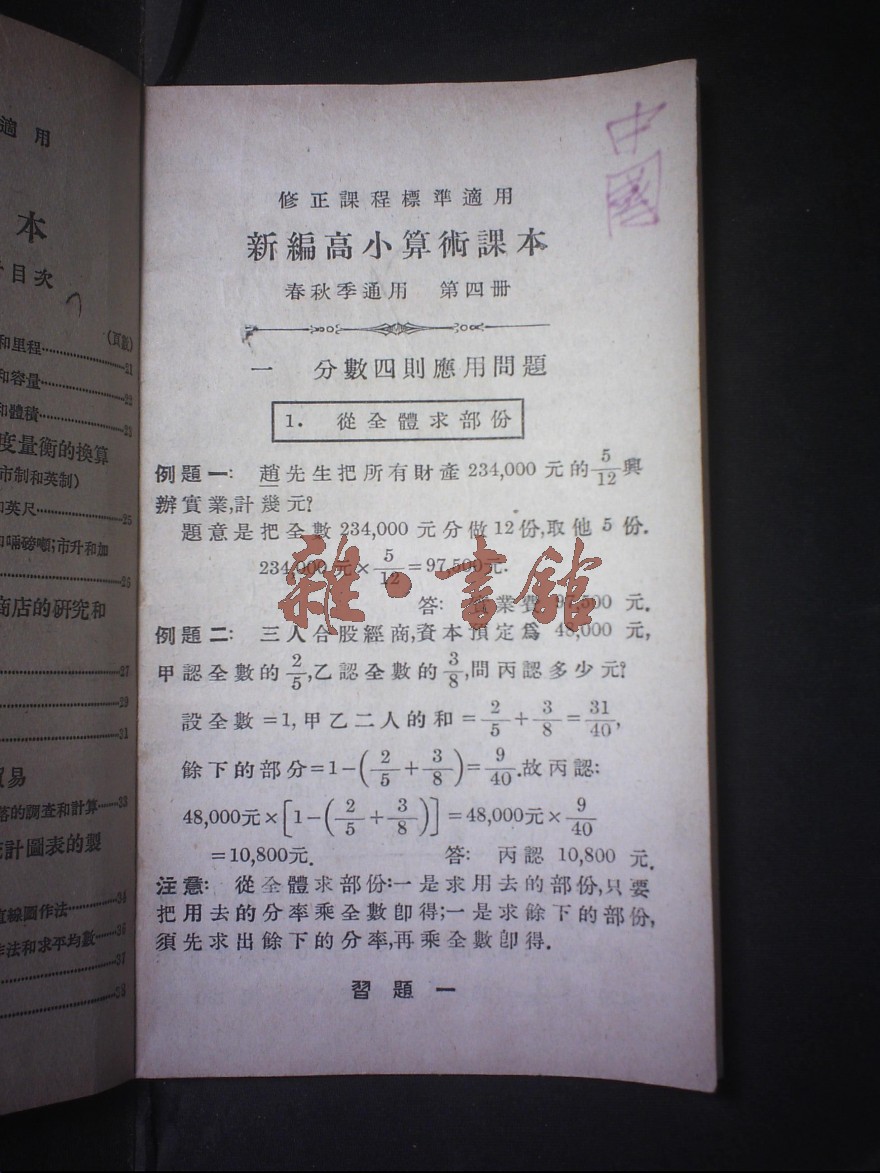 適用
本
目次
(頁數)
和里程……21
和容量……22
和體積……23
度量衡的換算
市制和英制)
和英尺……25
和啢磅噸;市升和加
……26
商店的研究和
……27
……29
……31
貿易
落的調查和計算……33
統計圖表的製
直線圖作法……34
作法和求平均數……36
……37
……38
中國
修正課程標準適用
新編高小算術課本
春秋季通用 第四冊
一 分數四則應用問題
1. 從全體求部份
例題一: 趙先生把所有財產234,000元的5/12興
辦實業,計幾元?
題意是把全數234,000元分做12份,取他5份.
234,000元×5/12=97,500元.
答: 實業費97,500元.
例題二: 三人合股經商,資本預定為48,000元,
甲認全數的2/5,乙認全數的3/8,問丙認多少元?
設全數=1,甲乙二人的和=2/5+3/8=31/40,
餘下的部分=1-(2/5+3/8)=9/40.故丙認:
48,000元×[1-(2/5+3/8)]=48,000元×9/40
=10,800元. 答: 丙認10,800元.
注意: 從全體求部份:一是求用去的部份,只要
把用去的分率乘全數卽得;一是求餘下的部份,
須先求出餘下的分率,再乘全數卽得.
習題一
雜·書館